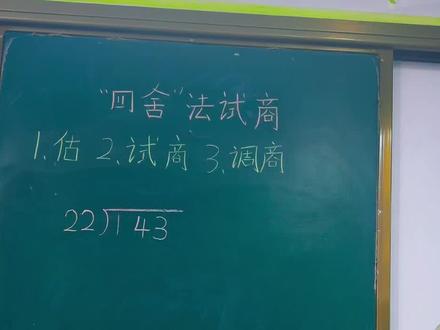 “四舍”法试商
1.估 2.试商 3.调商
22)143